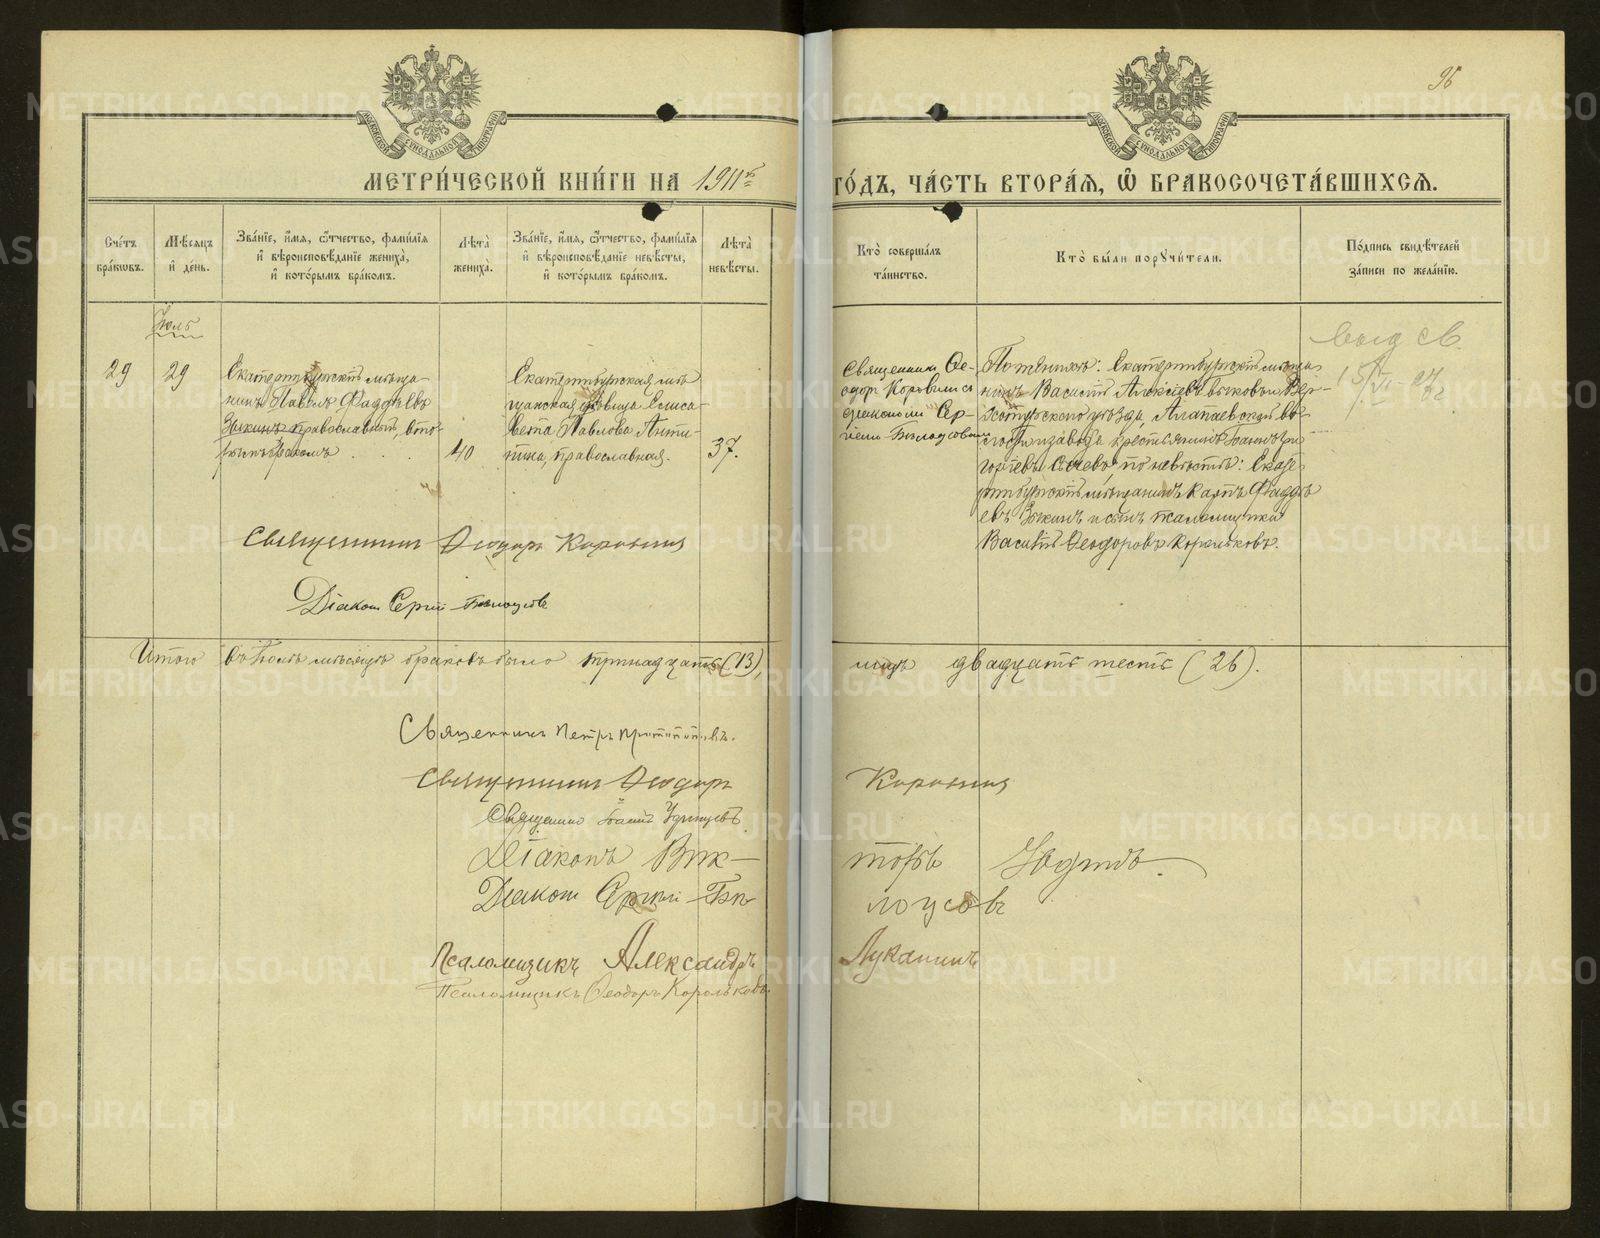 95
МЕТРИ́ЧЕСКОЙ КНИ́ГИ НА 1911й ГО́ДЪ, ЧА́СТЬ ВТОРА́Я, Ѿ БРАКОСОЧЕТА́ВШИХСЯ.
МОСКОВСКОЙ СѴНОДАЛЬНОЙ ТИПОГРАФІИ
МОСКОВСКОЙ СѴНОДАЛЬНОЙ ТИПОГРАФІИ
Сче́тъ бра́кѡвъ.
Мѣ́сяцъ и҆ де́нь.
Зва́нїе, и҆́мя, ѻ҆́тчество, фами́лїя и҆ вѣроисповѣ́данїе жениха̀, и҆ кото́рымъ бра́комъ.
Лѣ́та жениха̀.
Зва́нїе, и҆́мя, ѻ҆́тчество, фами́лїя и҆ вѣроисповѣ́данїе невѣ́сты, и҆ кото́рымъ бра́комъ.
Лѣ́та невѣ́сты.
Кто̀ соверша́лъ та́инство.
Кто̀ бы́ли порꙋчи́тели.
По́дпись свидѣ́телей за́писи по жела́нїю.
Іюль
29
29
Екатеринбургскій мѣща-
нинъ Павелъ Фаддѣевъ
Зыкинъ православный, вто-
рымъ бракомъ
40
Екатеринбургская мѣ-
щанская дѣвица Елиса-
вета Павлова Анти-
пина, православная.
37.
Священникъ Ѳе-
одоръ Коровинъ съ
діакономъ Сер-
гіемъ Бѣлоусовымъ
По женихѣ: Екатеринбургскій мѣща-
нинъ Василій Алексѣевъ Быковъ и Вер-
хотурскаго уѣзда, Алапаевской во-
лости и завода крестьянинъ Іоаннъ Гри-
горьевъ Сычевъ по невѣстѣ: Екате-
ринбургскій мѣщанинъ Карпъ Фаддѣ-
евъ Зыкинъ и сынъ псаломщика
Василій Ѳеодоровъ Корольковъ.
выд св.
Священникъ Ѳеодоръ Коровинъ
Діаконъ Сергій Бѣлоусовъ
Итого въ Іюлѣ мѣсяцѣ браковъ было тринадцать (13), лицъ двадцать шесть (26).
Священникъ Петръ
Священникъ Ѳеодоръ Коровинъ
Священникъ Іоаннъ Удинцевъ
Діаконъ Вик- торъ
Діаконъ Сергій Бѣ- лоусовъ
Псаломщикъ Александръ Луканинъ
Псаломщикъ Ѳеодоръ Корольковъ.
METRIKI.GASO-URAL.RU